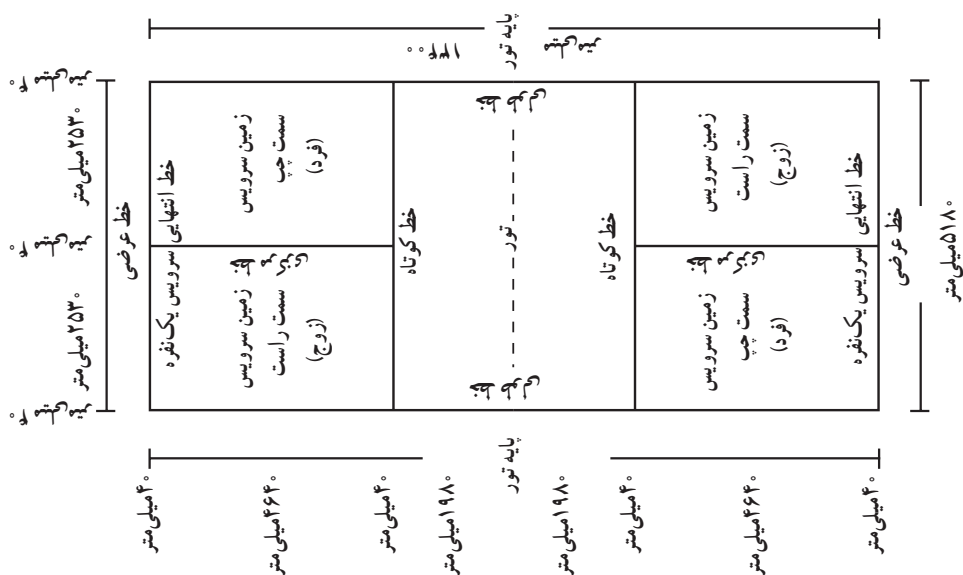 پایه تور
۱۳۴۰۰ میلی‌متر
۴۰ میلی‌متر
۲۵۳۰ میلی‌متر
۴۰ میلی‌متر
۲۵۳۰ میلی‌متر
۴۰ میلی‌متر
خط عرضی
خط انتهایی
سرویس یک‌نفره
زمین سرویس
سمت چپ
(فرد)
خط مرکزی
زمین سرویس
سمت راست
(زوج)
خط کوتاه
خط طولی
تور
خط طولی
خط کوتاه
زمین سرویس
سمت راست
(زوج)
خط مرکزی
زمین سرویس
سمت چپ
(فرد)
خط انتهایی
سرویس یک‌نفره
خط عرضی
۵۱۸۰ میلی‌متر
پایه تور
۴۰ میلی‌متر
۴۶۴۰ میلی‌متر
۴۰ میلی‌متر
۱۹۸۰ میلی‌متر
۱۹۸۰ میلی‌متر
۴۰ میلی‌متر
۴۶۴۰ میلی‌متر
۴۰ میلی‌متر